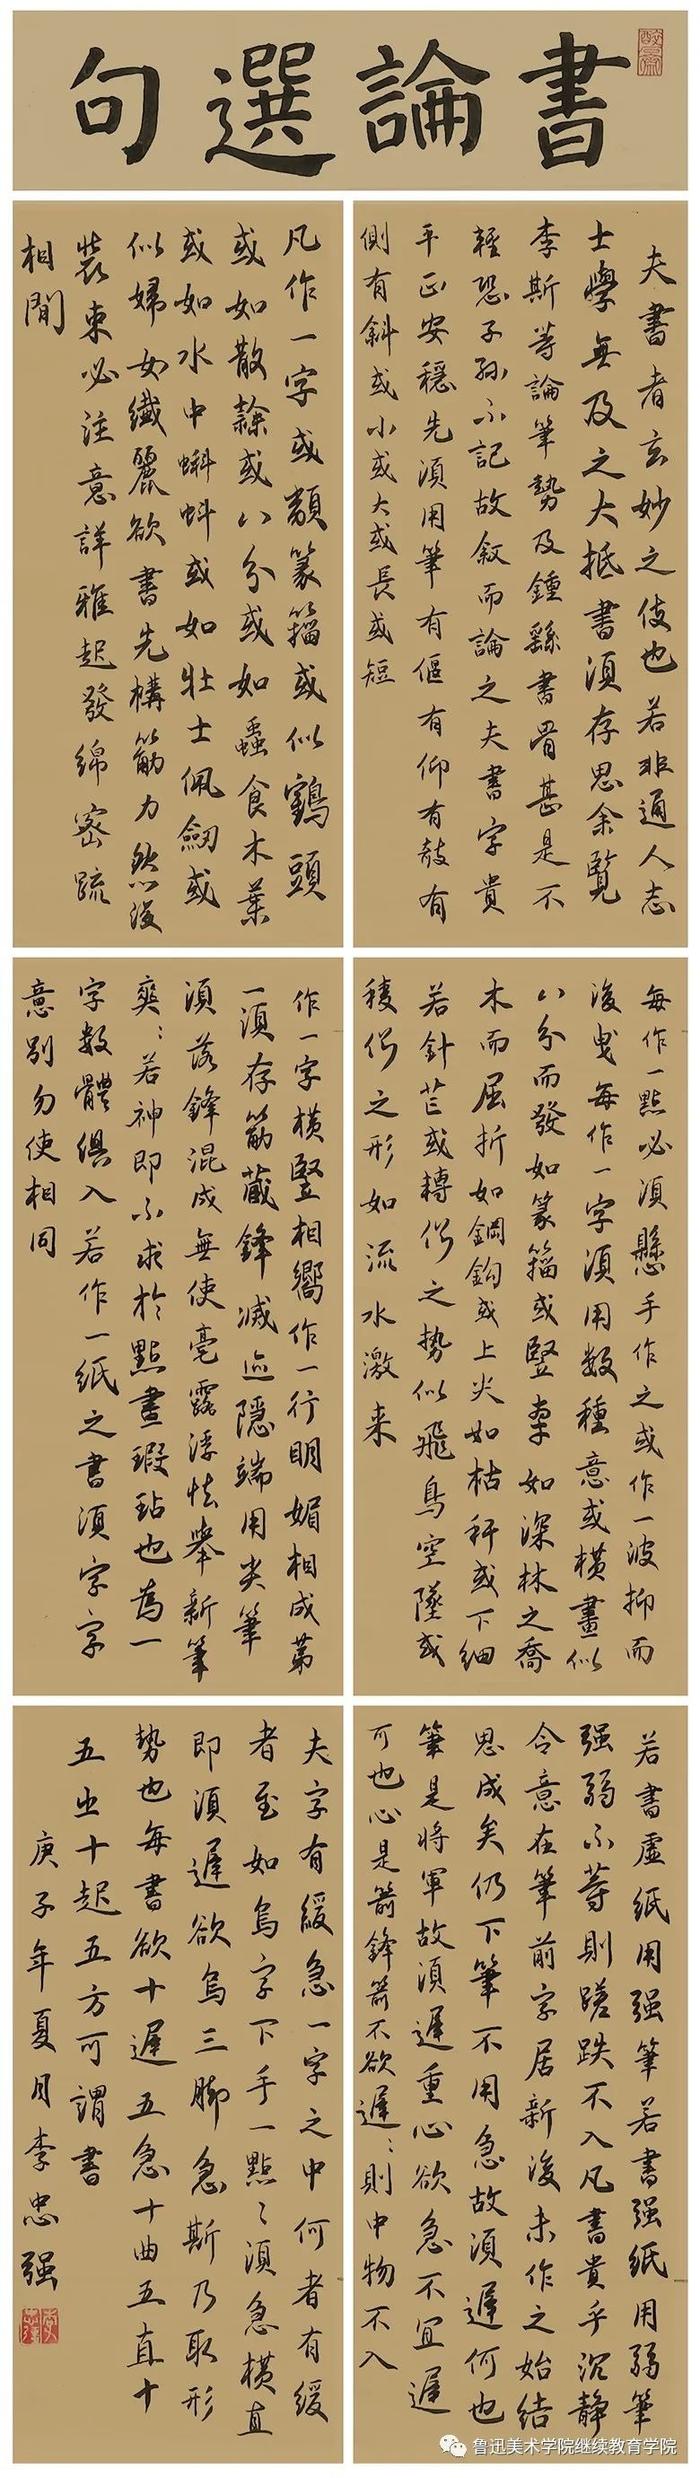 書論選句
夫書者玄妙之伎也若非通人志
士學無及之大抵書須存思余覽
李斯等論筆勢及鍾繇書骨甚是不
輕恐子孫不記故敘而論之夫書字貴
平正安穩先須用筆有偃有仰有攲有
側有斜或小或大或長或短
凡作一字或類篆籀或似鵠頭
或如散隸或八分或如蟲食木葉
或如水中蝌蚪或如壯士佩劍或
似婦女纖麗欲書先構筋力然後
裝束必注意詳雅起發綿密疏
相間
每作一點必須懸手作之或作一波抑而
後曳每作一字須用數種意或橫畫似
八分而發如篆籀或豎牽如深林之喬
木而屈折如鋼鉤或上尖如枯稈或下細
若針芒或轉側之勢似飛鳥空墜或
棱側之形如流水激來
作一字橫豎相嚮作一行明媚相成第
一須存筋藏鋒滅迹隱端用尖筆
須落鋒混成無使毫露浮怯舉新筆
爽〻若神即不求於點畫瑕玷也為一
字數體俱入若作一紙之書須字字
意別勿使相同
若書虛紙用强筆若書强紙用弱筆
强弱不等則蹉跌不入凡書貴乎沉靜
令意在筆前字居新後未作之始結
思成矣仍下筆不用急故須遲何也
筆是將軍故須遲重心欲急不宜遲
可也心是箭鋒箭不欲遲〻則中物不入
夫字有緩急一字之中何者有緩
者至如烏字下手一點〻須急橫直
即須遲欲烏三腳急斯乃取形
勢也每書欲十遲五急十曲五直十
五出十起五方可謂書
庚子年夏月李忠强
鲁迅美术学院继续教育学院